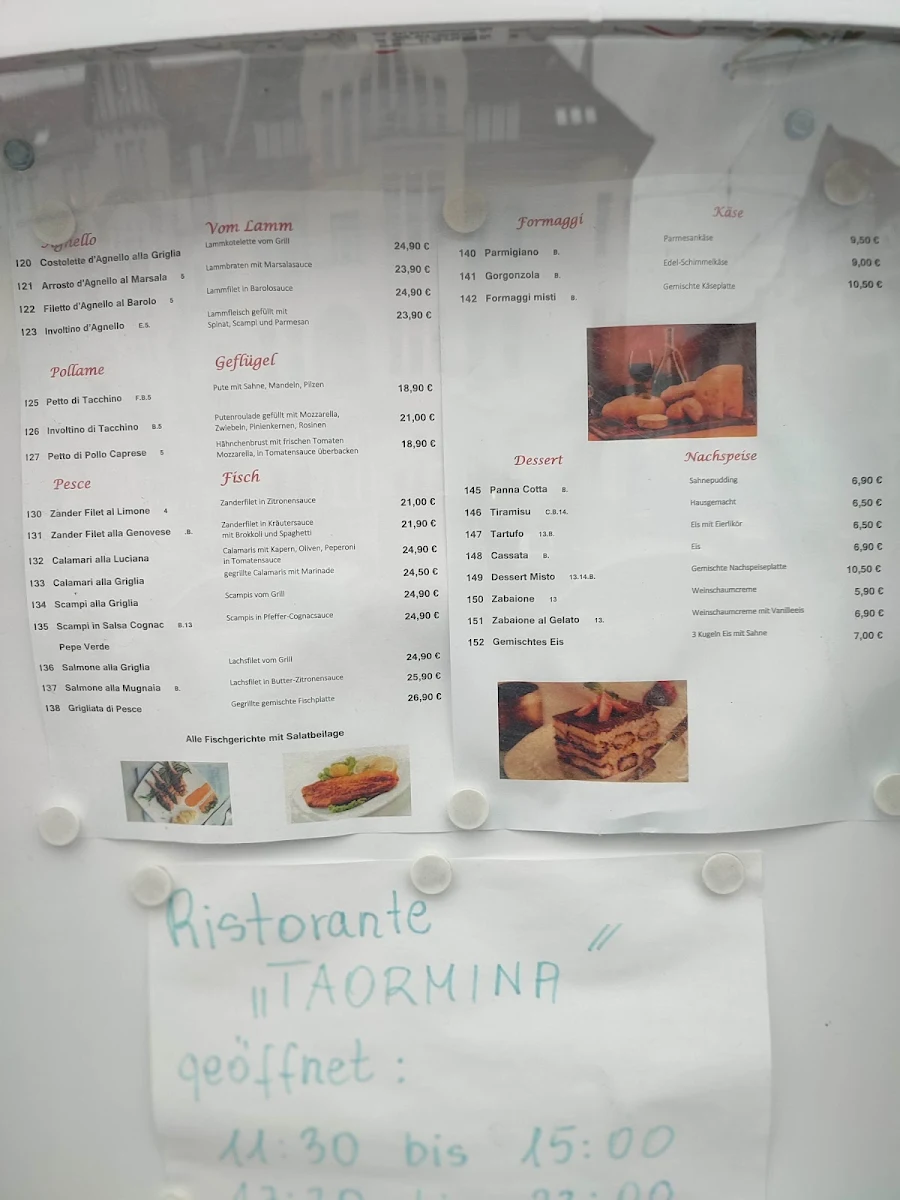 Vom Lamm
120 Costolette d'Agnello alla Griglia Lammkotelette vom Grill 24,90 €
121 Arrosto d'Agnello al Marsala 5 Lammbraten mit Marsalasauce 23,90 €
122 Filetto d'Agnello al Barolo 5 Lammfilet in Barolosauce 24,90 €
123 Involtino d'Agnello E.5. Lammfleisch gefüllt mit 23,90 €
Spinat, Scampi und Parmesan
Pollame Geflügel
125 Petto di Tacchino F.B.5 Pute mit Sahne, Mandeln, Pilzen 18,90 €
126 Involtino di Tacchino B.5 Putenroulade gefüllt mit Mozzarella, 21,00 €
Zwiebeln, Pinienkernen, Rosinen
127 Petto di Pollo Caprese 5 Hähnchenbrust mit frischen Tomaten 18,90 €
Mozzarella, in Tomatensauce überbacken
Pesce Fisch
130 Zander Filet al Limone 4 Zanderfilet in Zitronensauce 21,00 €
131 Zander Filet alla Genovese .B. Zanderfilet in Kräutersauce 21,90 €
mit Brokkoli und Spaghetti
132 Calamari alla Luciana Calamaris mit Kapern, Oliven, Peperoni 24,90 €
in Tomatensauce
133 Calamari alla Griglia gegrillte Calamaris mit Marinade 24,50 €
134 Scampi alla Griglia Scampis vom Grill 24,90 €
135 Scampi in Salsa Cognac B.13 Scampis in Pfeffer-Cognacsauce 24,90 €
Pepe Verde
136 Salmone alla Griglia Lachsfilet vom Grill 24,90 €
137 Salmone alla Mugnaia B. Lachsfilet in Butter-Zitronensauce 25,90 €
138 Grigliata di Pesce Gegrillte gemischte Fischplatte 26,90 €
Alle Fischgerichte mit Salatbeilage
Formaggi Käse
140 Parmigiano B. Parmesankäse 9,50 €
141 Gorgonzola B. Edel-Schimmelkäse 9,00 €
142 Formaggi misti B. Gemischte Käseplatte 10,50 €
Dessert Nachspeise
145 Panna Cotta B. Sahnepudding 6,90 €
146 Tiramisu C.B.14. Hausgemacht 6,50 €
147 Tartufo 13.B. Eis mit Eierlikör 6,50 €
148 Cassata B. Eis 6,90 €
149 Dessert Misto 13.14.B. Gemischte Nachspeiseplatte 10,50 €
150 Zabaione 13 Weinschaumcreme 5,90 €
151 Zabaione al Gelato 13. Weinschaumcreme mit Vanilleeis 6,90 €
152 Gemischtes Eis 3 Kugeln Eis mit Sahne 7,00 €
Ristorante
„TAORMINA"
geöffnet :
11:30 bis 15:00